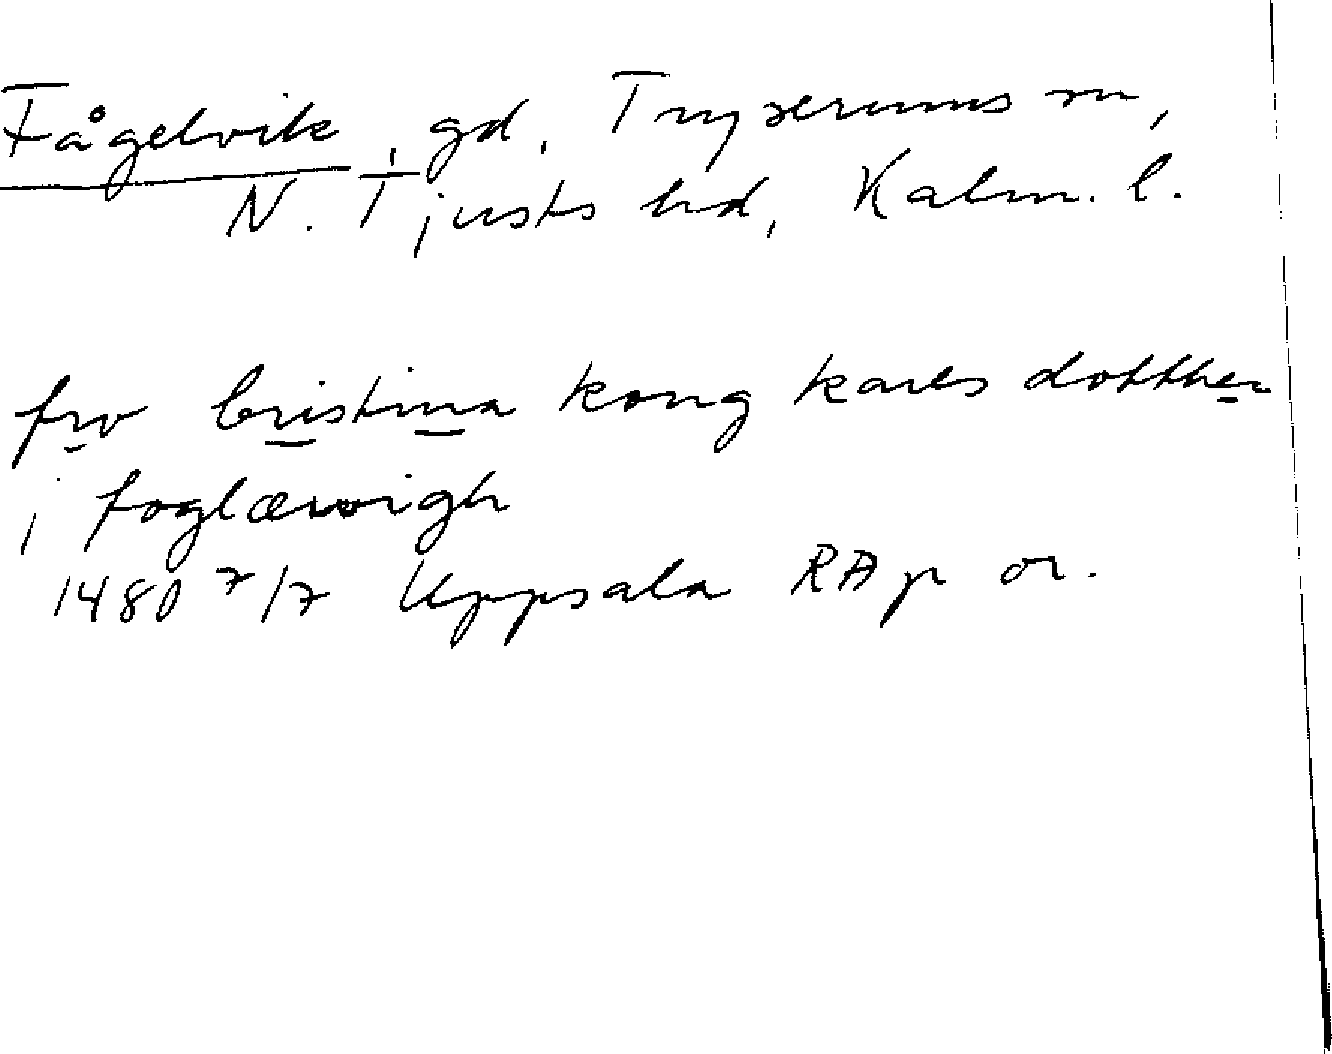 Fågelvik, gd, Tryserums sn,
N. Tjusts hd, Kalm. l.
frv cristina kong karls dotther
i foglærvigh
1480 7/7 Uppsala RAp or.